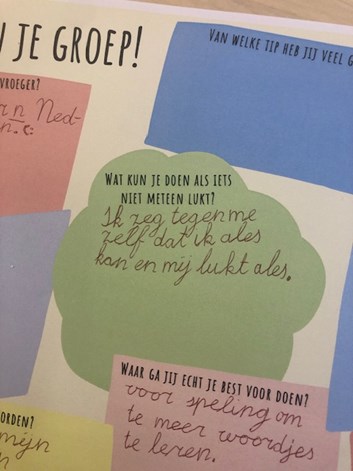 N JE GROEP!
VAN WELKE TIP HEB JIJ VEEL G
VROEGER?
n Ned-
n.
WAT KUN JE DOEN ALS IETS
NIET METEEN LUKT?
Ik zeg tegen me
zelf dat ik ales
kan en mij lukt ales.
WAAR GA JIJ ECHT JE BEST VOOR DOEN?
voor speling om
te meer woordjes
te leren.
ORDEN?
mijn
n